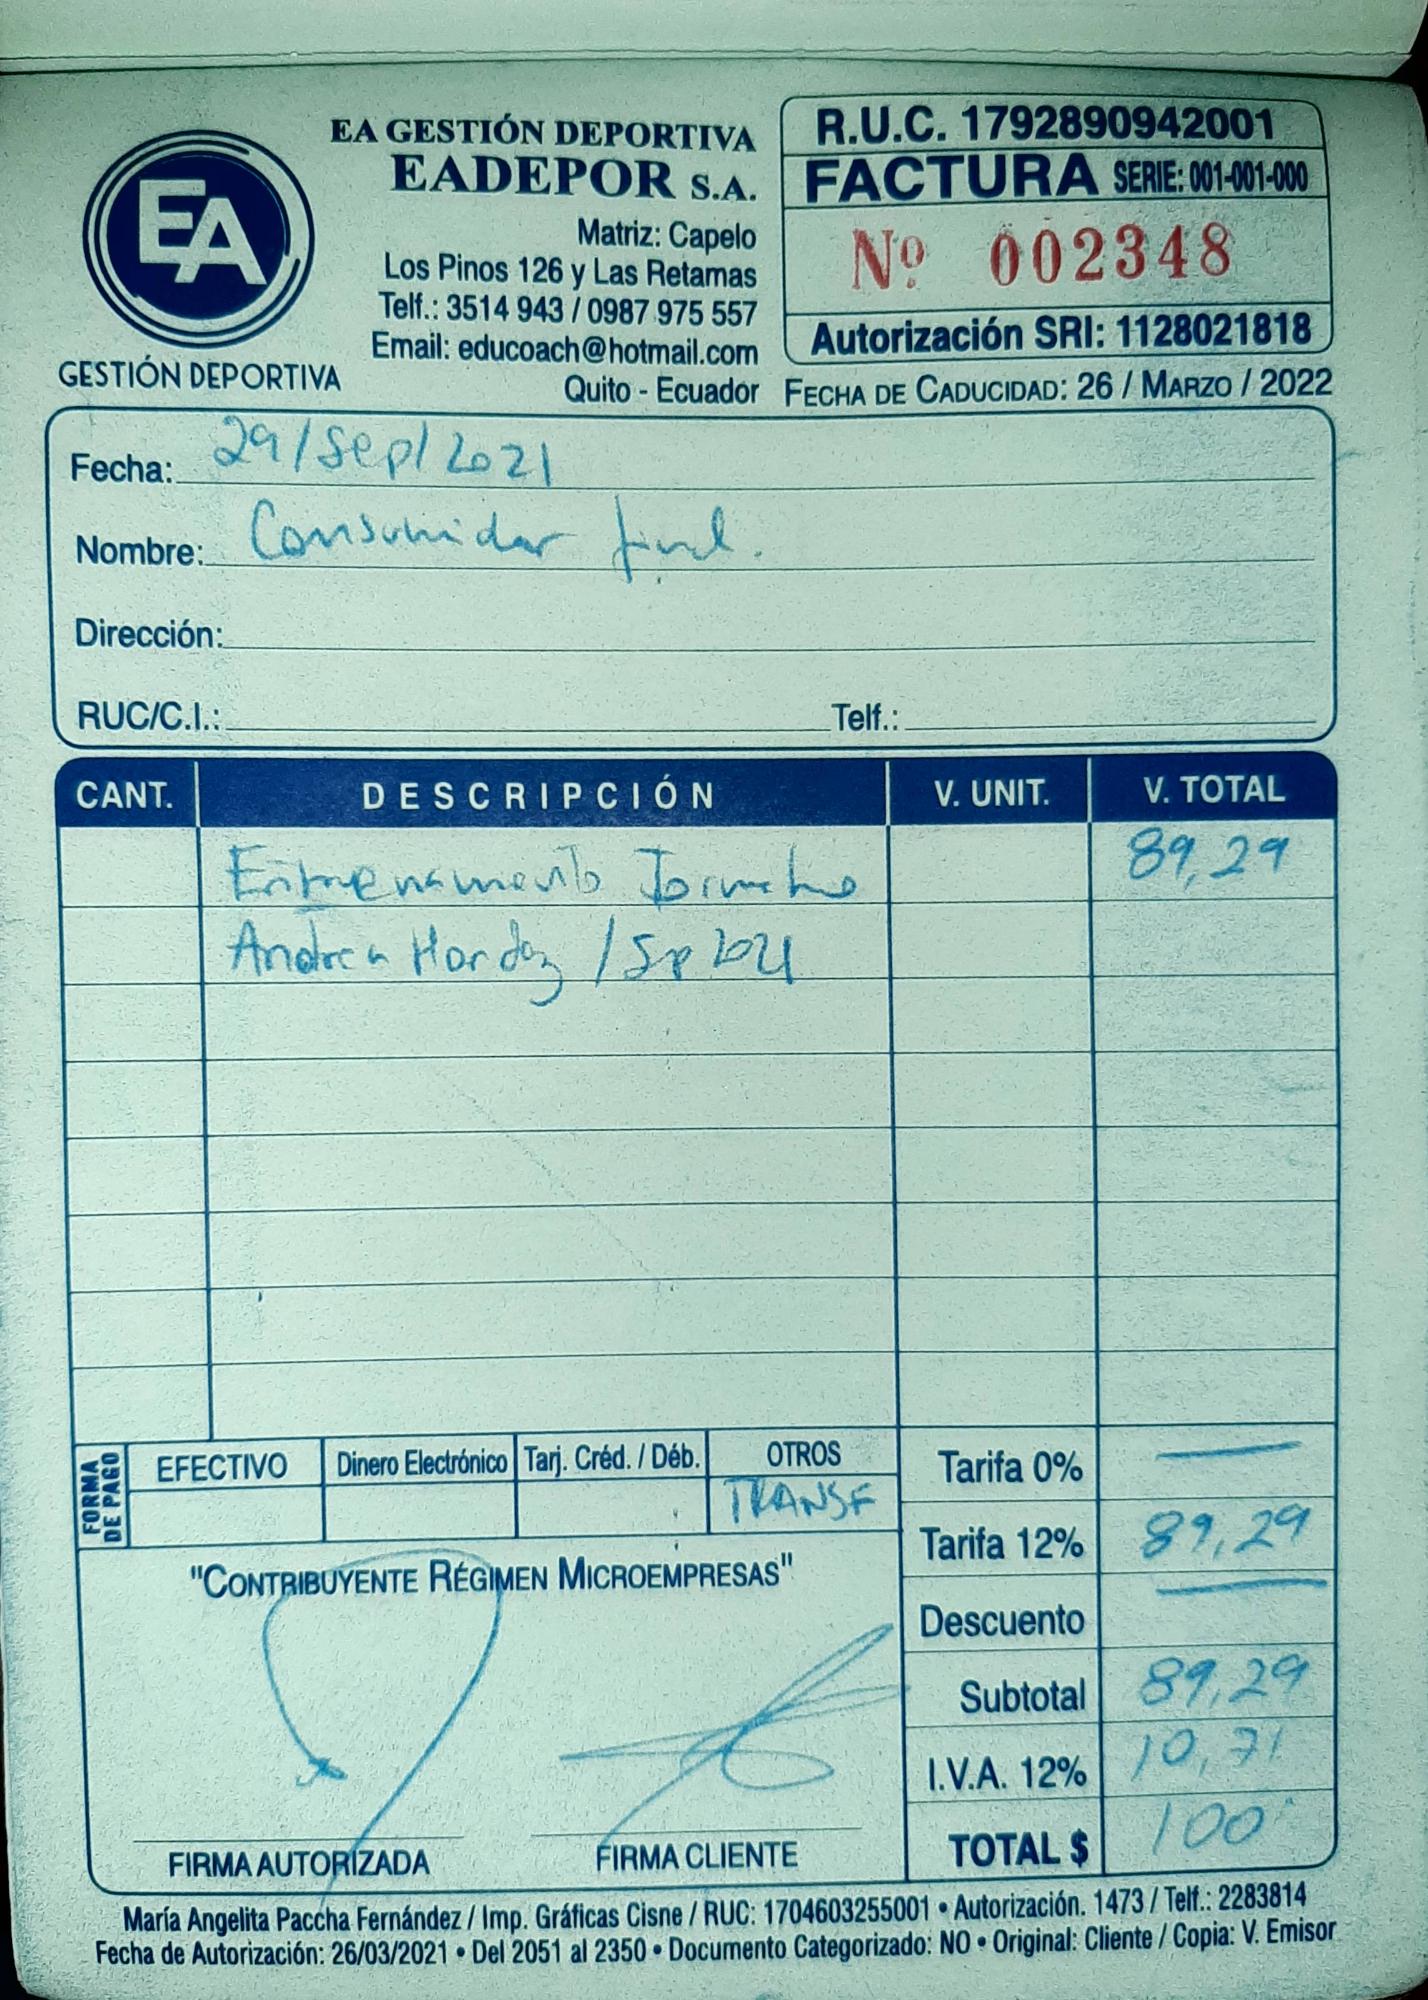 EA GESTIÓN DEPORTIVA
EADEPOR S.A.
Matriz: Capelo
Los Pinos 126 y Las Retamas
Telf.: 3514 943 / 0987 975 557
Email: educoach@hotmail.com
Quito - Ecuador
EA
GESTIÓN DEPORTIVA
R.U.C. 1792890942001
FACTURA SERIE: 001-001-000
Nº 002348
Autorización SRI: 1128021818
FECHA DE CADUCIDAD: 26 / MARZO / 2022
Fecha: 29/Sep/2021
Nombre: Consumidor final.
Dirección:
RUC/C.I.: Telf.:
CANT. DESCRIPCIÓN V. UNIT. V. TOTAL
Entrenamiento 89,29
Andrea / Sep 2021
FORMA DE PAGO
EFECTIVO Dinero Electrónico Tarj. Créd. / Déb. OTROS
TRANSF
Tarifa 0% —
Tarifa 12% 89,29
Descuento —
Subtotal 89,29
I.V.A. 12% 10,71
TOTAL $ 100
"CONTRIBUYENTE RÉGIMEN MICROEMPRESAS"
FIRMA AUTORIZADA FIRMA CLIENTE
María Angelita Paccha Fernández / Imp. Gráficas Cisne / RUC: 1704603255001 • Autorización. 1473 / Telf.: 2283814
Fecha de Autorización: 26/03/2021 • Del 2051 al 2350 • Documento Categorizado: NO • Original: Cliente / Copia: V. Emisor